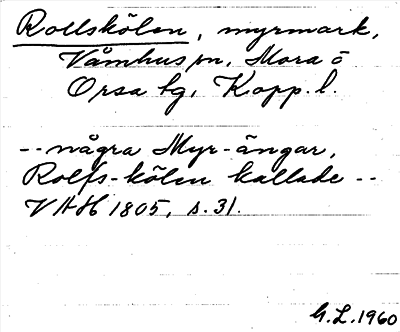 Rollskölen, myrmark,
Våmhus sn, Mora o
Orsa tg, Kopp. l.
-- några Myr-ängar,
Rolfs-kölen kallade --
VAH 1805, s. 31.
G.L. 1960